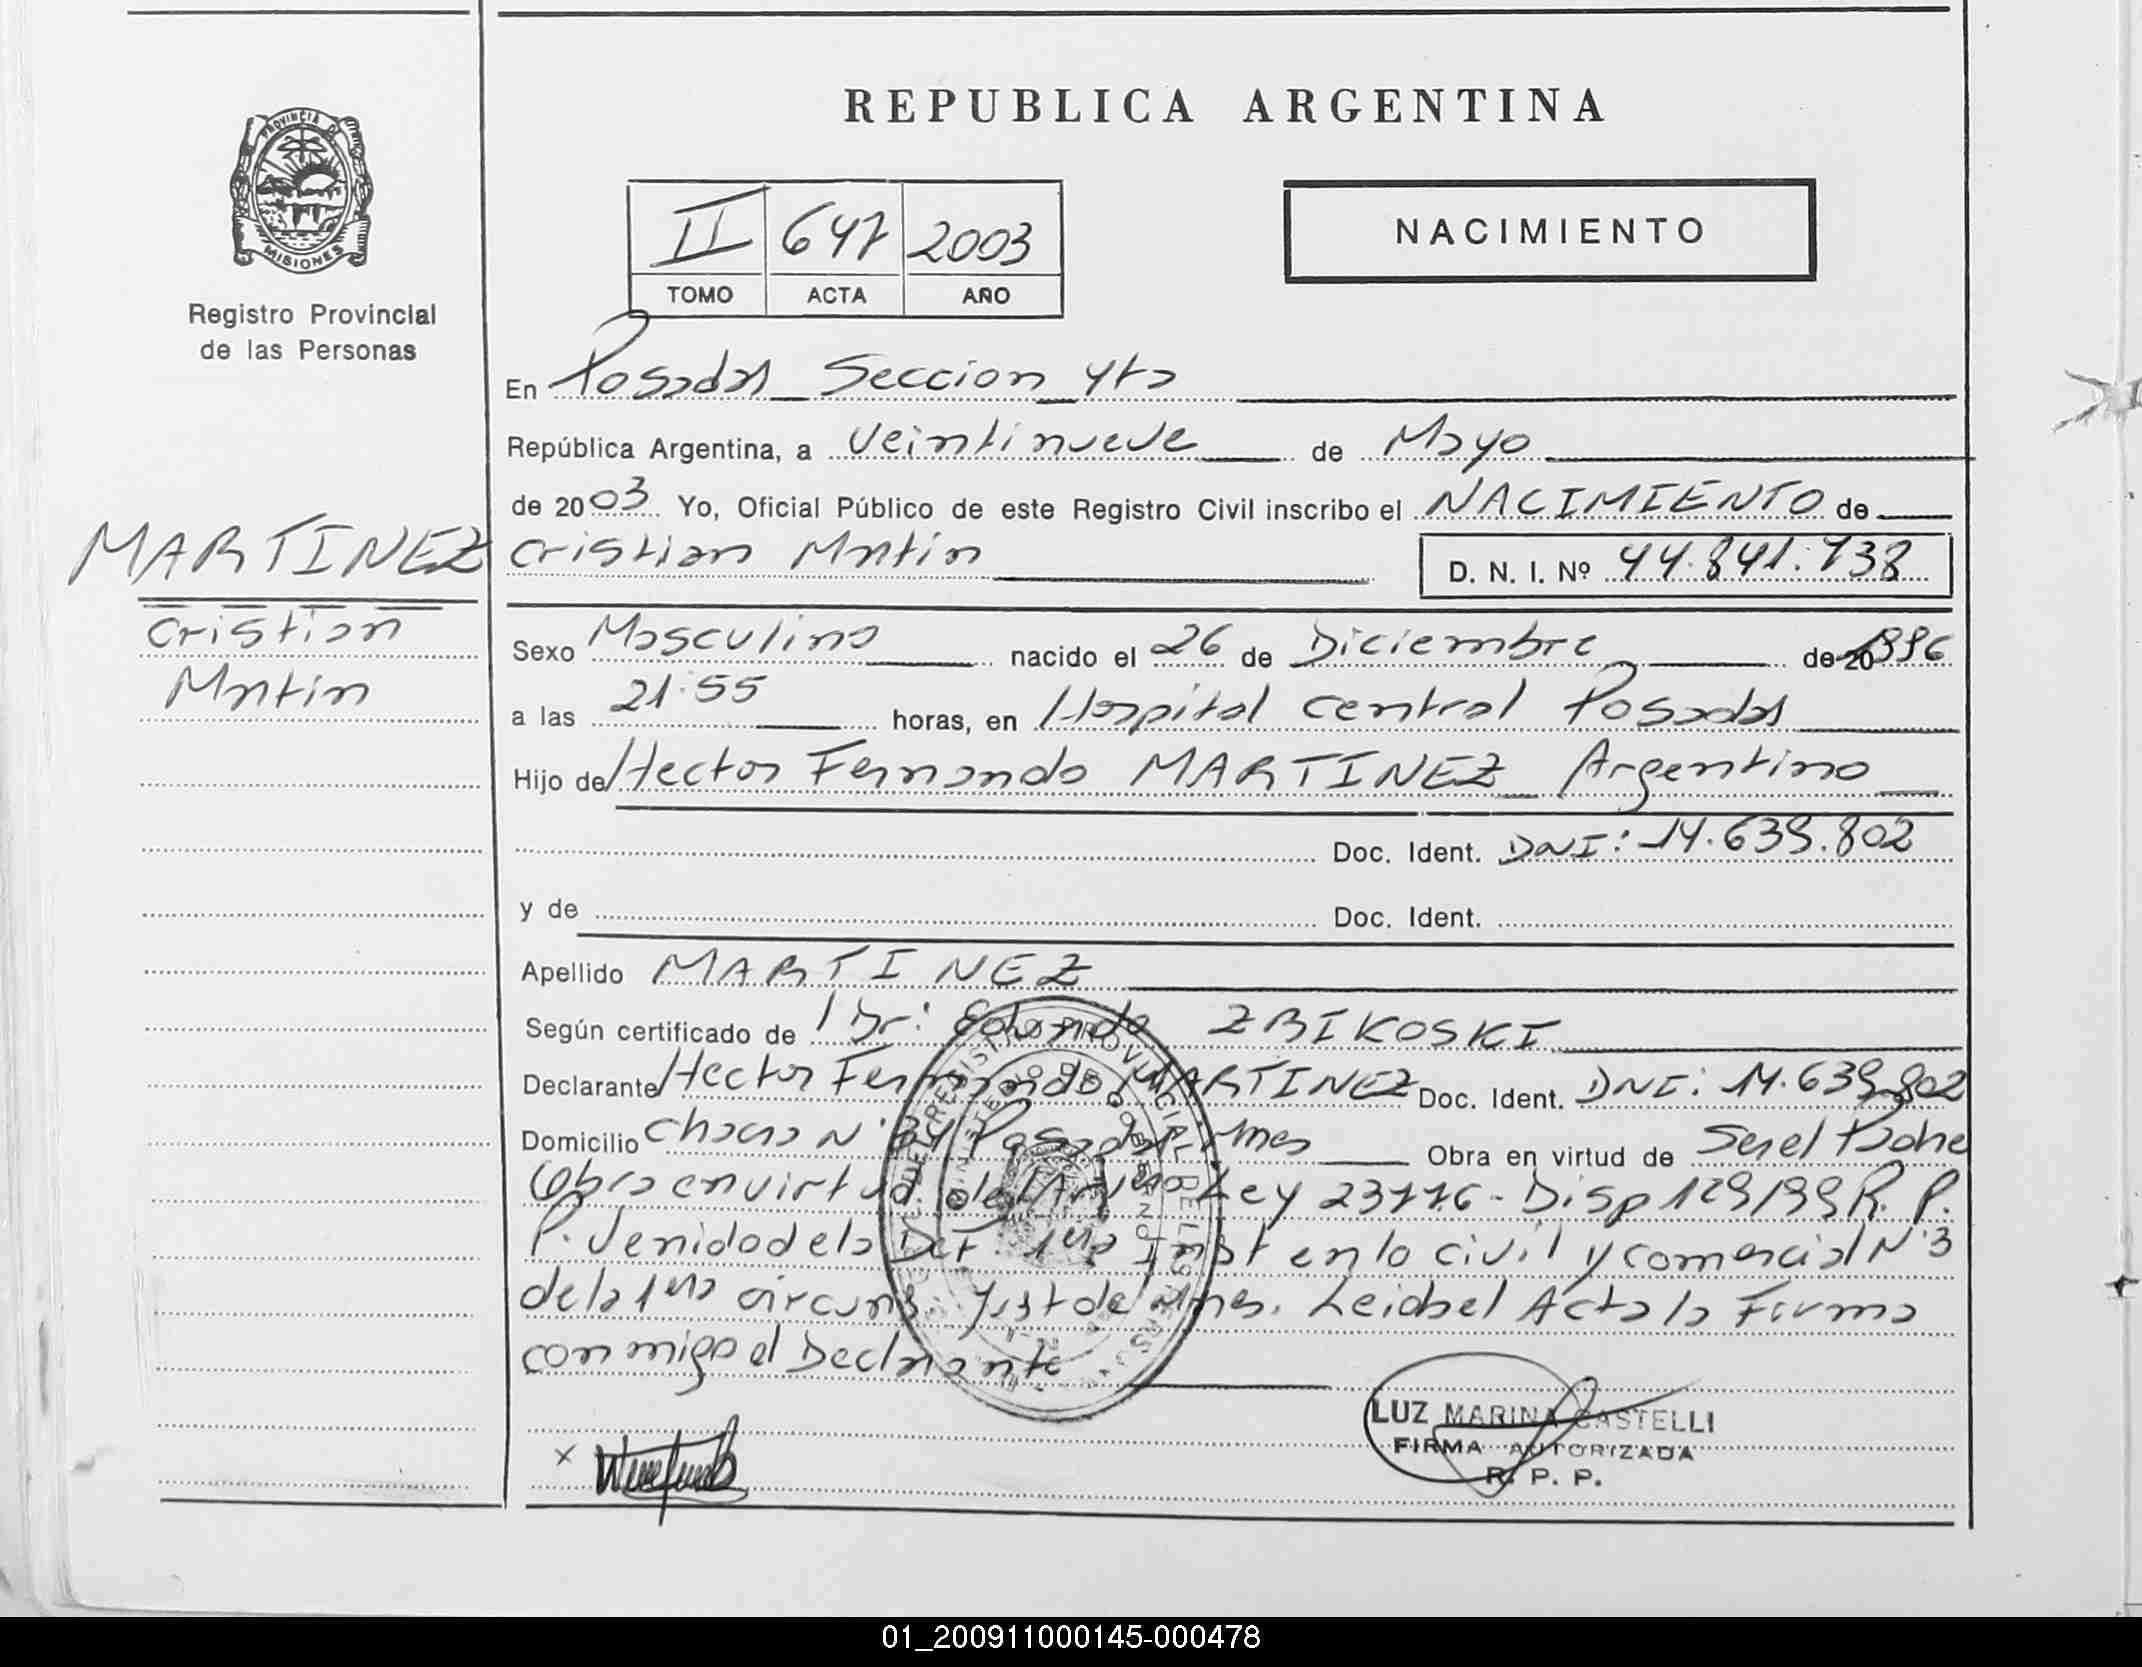 REPUBLICA ARGENTINA
PROVINCIA D MISIONES
Registro Provincial
de las Personas
II 647 2003
TOMO ACTA AÑO
NACIMIENTO
En Posadas Seccion 4ta
República Argentina, a Veintinueve de Mayo
de 2003 Yo, Oficial Público de este Registro Civil inscribo el NACIMIENTO de
MARTINEZ
Cristian Martin
Cristian Martin D. N. I. Nº 44.841.738
Sexo Masculino nacido el 26 de Diciembre de 20 1996
a las 21:55 horas, en Hospital Central Posadas
Hijo de Hector Fernando MARTINEZ Argentino
Doc. Ident. DNI: 14.639.802
y de Doc. Ident.
Apellido MARTINEZ
Según certificado de Dr: ZBIKOSKI
Declarante Hector Fernando MARTINEZ Doc. Ident. DNI: 14.639.802
Domicilio Chaco N° Posadas Mnes Obra en virtud de Ser el Padre
Obra en virtud del Art Ley 23776 - Disp 129/99 R. P.
P. Venido de la Def. 1ra Inst en lo civil y comercial N°3
de la 1ra circuns. Just de Mnes. Leida el Acta la Firma
con migo el Declarante
X
LUZ MARINA CASTELLI
FIRMA AUTORIZADA
R. P. P.
01_200911000145-000478